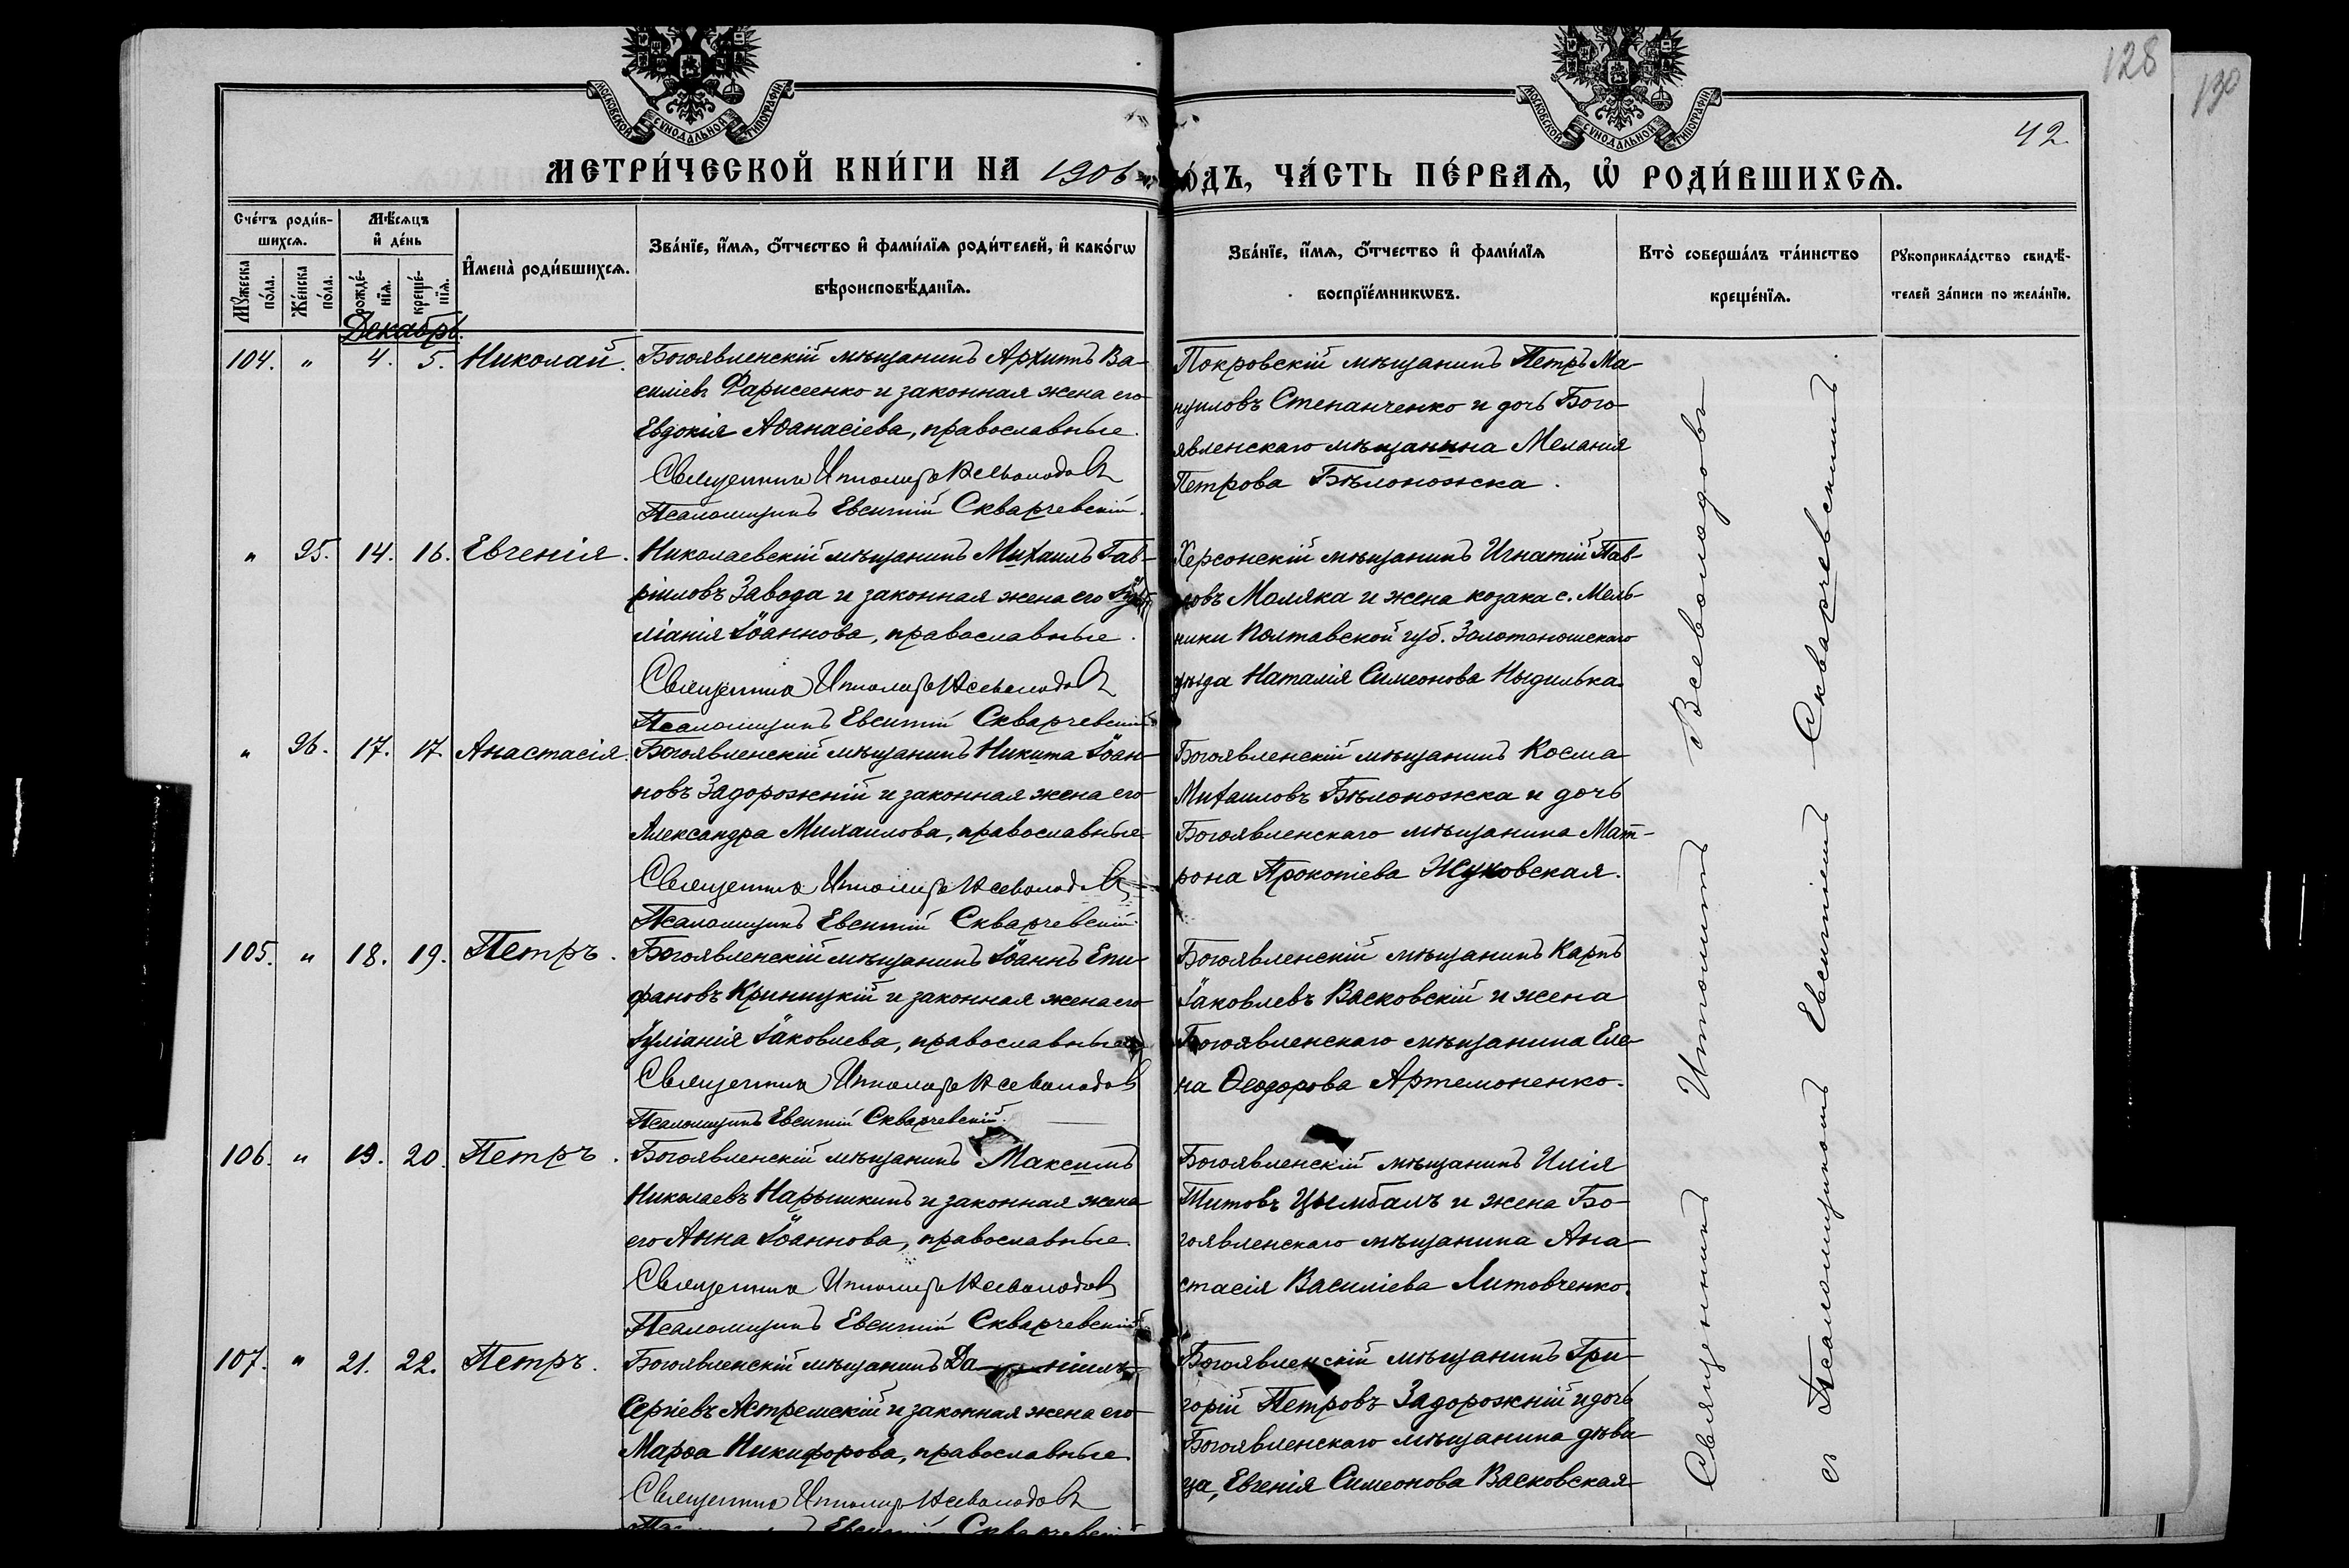 128
130
42.
МОСКОВСКОЙ СѴНОДАЛЬНОЙ ТИПОГРАФІИ
МОСКОВСКОЙ СѴНОДАЛЬНОЙ ТИПОГРАФІИ
МЕТРИ́ЧЕСКОЙ КНИ́ГИ НА 1906 го́дъ, ЧА́СТЬ ПЕ́РВАЯ, Ѡ҆ РОДИ́ВШИХСЯ.
Сче́тъ роди́в-
шихся.
Мѣ́сяцъ
и҆ де́нь
Мꙋ́жеска
по́ла.
Же́нска
по́ла.
рожде́-
нїя.
креще́-
нїя.
И҆мена̀ роди́вшихся.
Зва́нїе, и҆́мя, ѻ҆́тчество и҆ фами́лїя роди́телей, и҆ како́гѡ
вѣроисповѣ́данїя.
Зва́нїе, и҆́мя, ѻ҆́тчество и҆ фами́лїя
воспрїе́мникѡвъ.
Кто̀ соверша́лъ та́инство
креще́нїя.
Рꙋкоприкла́дство свидѣ́-
телей за́писи по жела́нїю.
Декабрь.
104. " 4. 5. Николай. Богоявленскій мѣщанинъ Архипъ Ва-
силіевъ Фарисеенко и законная жена его
Евдокія Аѳанасіева, православные.
Священникъ Ипполитъ Всеволодовъ
Псаломщикъ Евсигній Скварчевскій.
Покровскій мѣщанинъ Петръ Ма-
нуиловъ Степанченко и дочь Бого-
явленскаго мѣщанина Меланія
Петрова Бѣлоножка.
" 95. 14. 16. Евгенія. Николаевскій мѣщанинъ Михаилъ Гав-
ріиловъ Завода и законная жена его Іу-
ліанія Іоаннова, православные.
Священникъ Ипполитъ Всеволодовъ
Псаломщикъ Евсигній Скварчевскій
Херсонскій мѣщанинъ Игнатій Пав-
ловъ Моляка и жена козака с. Мель-
ники Полтавской губ. Золотоношскаго
уѣзда Наталія Симеонова Ныдилька.
" 96. 17. 17. Анастасія. Богоявленскій мѣщанинъ Никита Іоан-
новъ Задорожній и законная жена его
Александра Михаилова, православные
Священникъ Ипполитъ Всеволодовъ
Псаломщикъ Евсигній Скварчевскій
Богоявленскій мѣщанинъ Косма
Михаиловъ Бѣлоножка и дочь
Богоявленскаго мѣщанина Мат-
рона Прокопіева Жуковская.
105. " 18. 19. Петръ. Богоявленскій мѣщанинъ Іоаннъ Епи-
фановъ Криницкій и законная жена его
Іуліанія Іаковлева, православные
Священникъ Ипполитъ Всеволодовъ
Псаломщикъ Евсигній Скварчевскій.
Богоявленскій мѣщанинъ Карпъ
Іаковлевъ Васковскій и жена
Богоявленскаго мѣщанина Еле-
на Ѳеодорова Артемоненко.
106. " 19. 20. Петръ. Богоявленскій мѣщанинъ Максимъ
Николаевъ Нарышкинъ и законная жена
его Анна Іоаннова, православные.
Священникъ Ипполитъ Всеволодовъ
Псаломщикъ Евсигній Скварчевскій
Богоявленскій мѣщанинъ Илія
Титовъ Цымбалъ и жена Бо-
гоявленскаго мѣщанина Ана-
стасія Василіева Литовченко.
107. " 21. 22. Петръ. Богоявленскій мѣщанинъ Да-ніилъ
Сергіевъ Ястремскій и законная жена его
Марѳа Никифорова, православные.
Священникъ Ипполитъ Всеволодовъ
Евсигній Скварчевскій
Богоявленскій мѣщанинъ Гри-
горій Петровъ Задорожній и дочь
Богоявленскаго мѣщанина дѣви-
ца, Евгенія Симеонова Васковская
Священникъ Ипполитъ Всеволодовъ
съ Псаломщикомъ Евсигніемъ Скварчевскимъ.